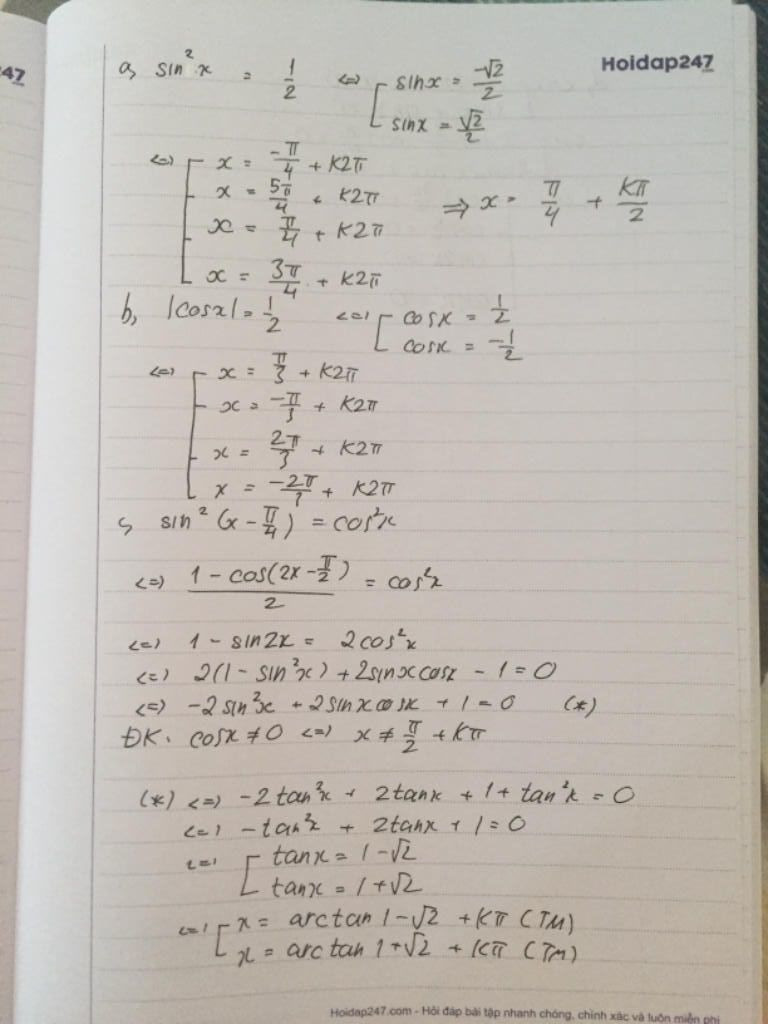 47
Hoidap247
a, sin²x = 1/2 <=> [ sinx = -√2/2
sinx = √2/2
<=> [ x = -π/4 + K2π
x = 5π/4 + K2π => x = π/4 + Kπ/2
x = π/4 + K2π
x = 3π/4 + K2π
b, |cosx| = 1/2 <=> [ cosx = 1/2
cosx = -1/2
<=> [ x = π/3 + K2π
x = -π/3 + K2π
x = 2π/3 + K2π
x = -2π/3 + K2π
c, sin²(x - π/4) = cos²x
<=> (1 - cos(2x - π/2))/2 = cos²x
<=> 1 - sin2x = 2cos²x
<=> 2(1 - sin²x) + 2sinxcosx - 1 = 0
<=> -2sin²x + 2sinxcosx + 1 = 0 (*)
ĐK. cosx ≠ 0 <=> x ≠ π/2 + Kπ
(*) <=> -2tan²x + 2tanx + 1 + tan²x = 0
<=> -tan²x + 2tanx + 1 = 0
<=> [ tanx = 1 - √2
tanx = 1 + √2
<=> [ x = arctan 1 - √2 + Kπ (TM)
x = arctan 1 + √2 + Kπ (TM)
Hoidap247.com - Hỏi đáp bài tập nhanh chóng, chính xác và luôn miễn phí